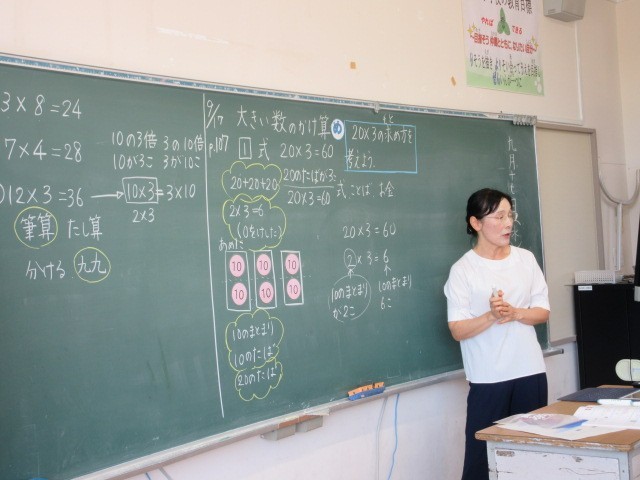 3×8=24
7×4=28
12×3=36
10の3倍 3の10倍
10が3こ 3が10こ
10×3=3×10
2×3
筆算 たし算
分ける 九九
9/17
p.107
大きい数のかけ算
め
20×3の求め方を
考えよう。
1 式 20×3=60
20+20+20
20のたばが3こ
20×3=60
式 ことば お金
2×3=6
(0をけした)
あめに
10 10 10
10 10 10
10のまとまり
10のたば
20のたば
20×3=60
2×3=6
10のまとまり
が2こ
10のまとまり
6こ
九月十七日
の教育目標
やれば できる